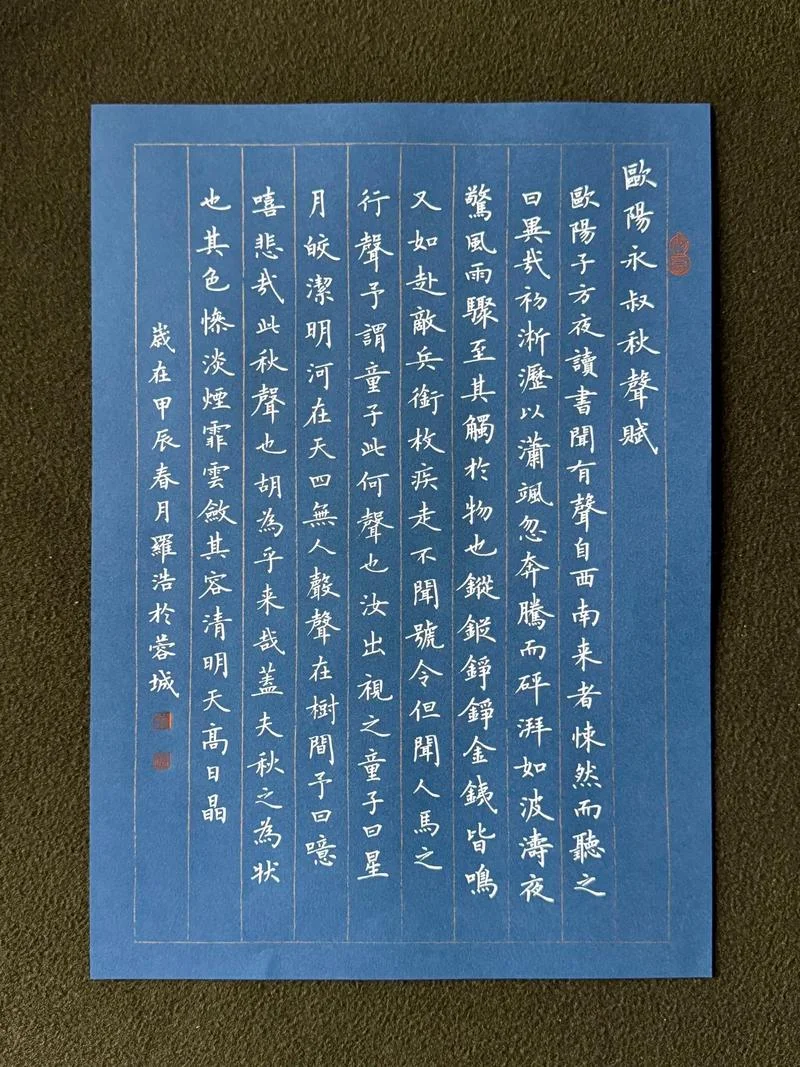 歐陽永叔秋聲賦
歐陽子方夜讀書聞有聲自西南来者悚然而聽之
曰異㢤初淅瀝以瀟颯忽奔騰而砰湃如波濤夜
驚風雨驟至其觸於物也鏦鏦錚錚金鉄皆鳴
又如赴敵兵銜枚疾走不聞號令但聞人馬之
行聲予謂童子此何聲也汝出視之童子曰星
月皎潔明河在天四無人聲聲在樹間予曰噫
嘻悲㢤此秋聲也胡為乎来哉蓋夫秋之為狀
也其色慘淡煙霏雲斂其容清明天高日晶
歲在甲辰春月羅浩於蓉城